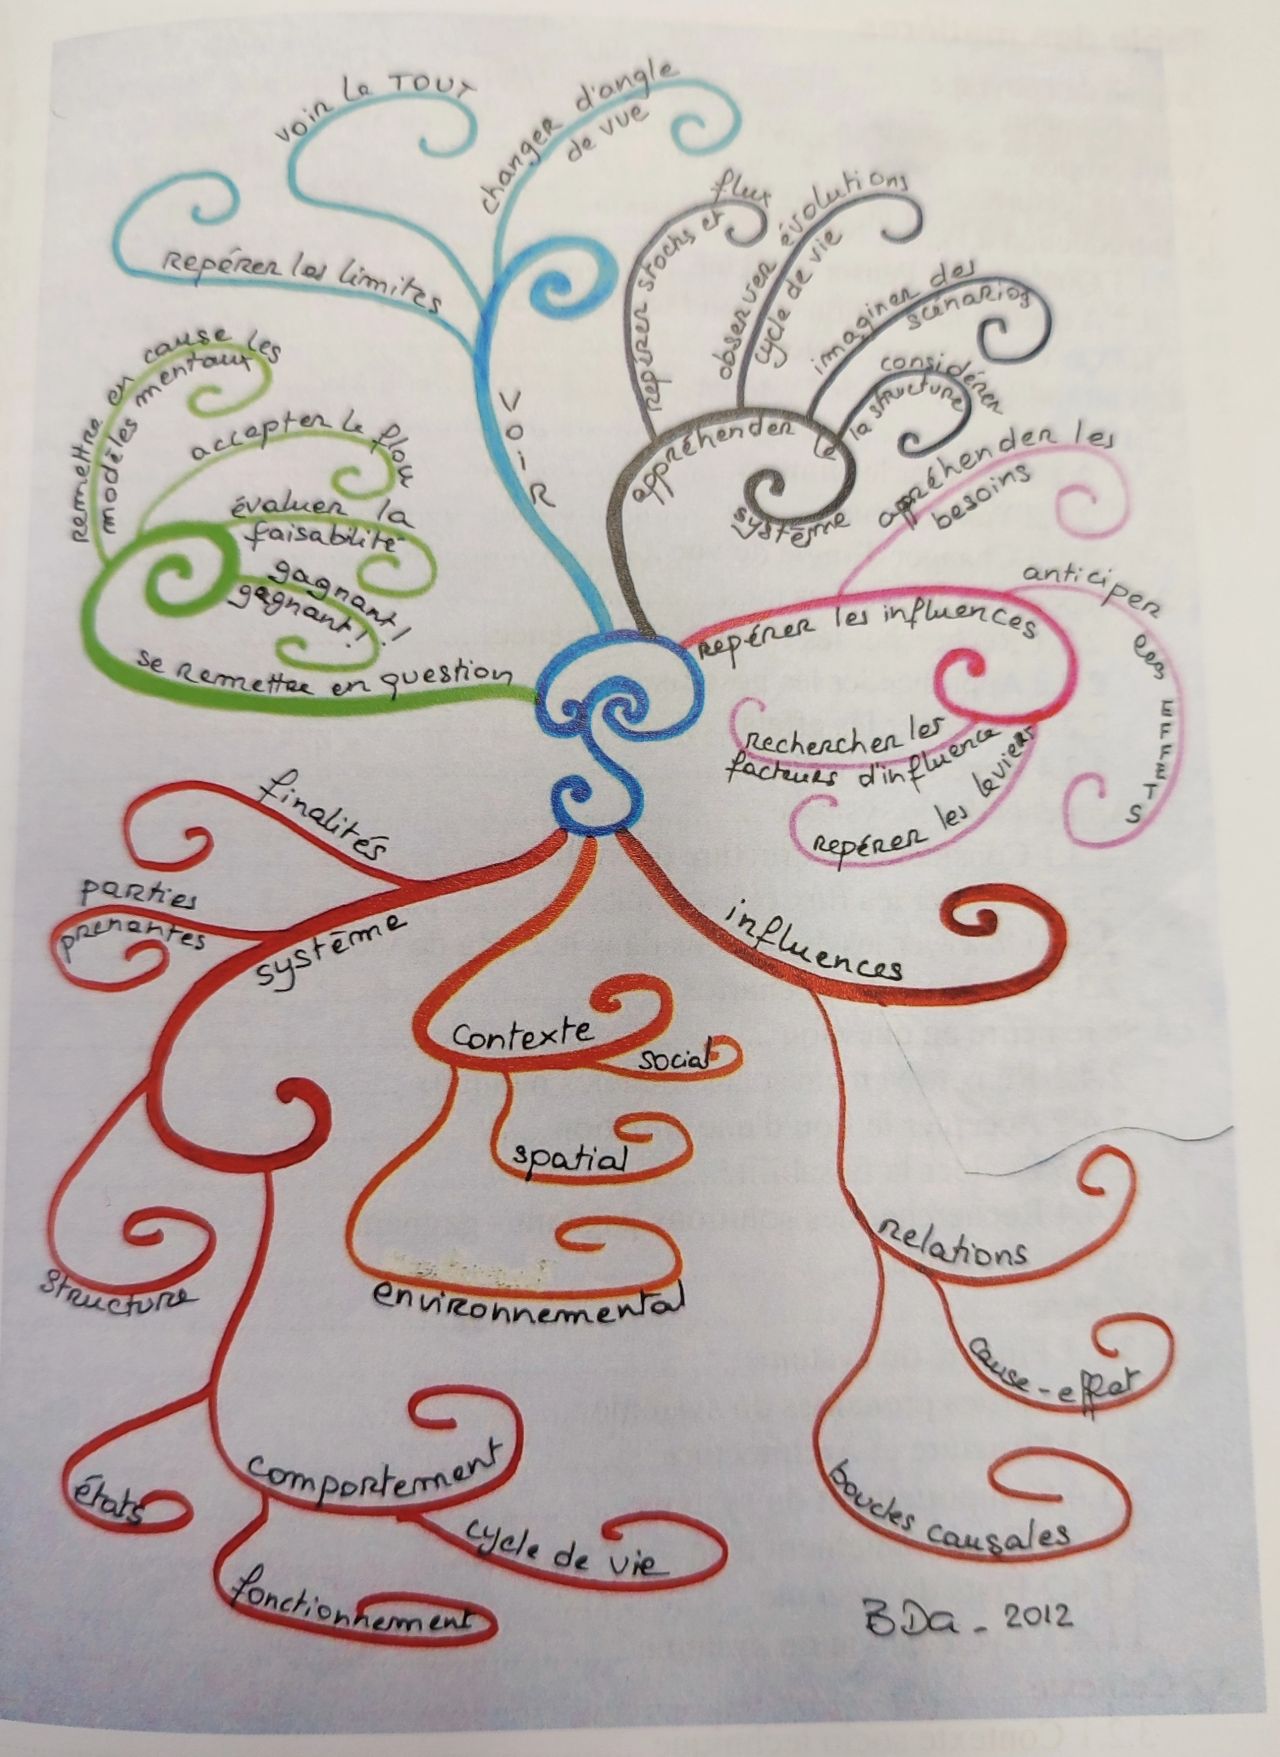 voir le TOUT
changer d'angle
de vue
repérer les limites
VOIR
repérer stocks et
flux
observer évolutions
cycle de vie
imaginer des
scénarios
considérer
la structure
appréhender le
système
remettre en cause les
modèles mentaux
accepter le flou
évaluer la
faisabilité
gagnant!
gagnant!
se remettre en question
appréhender les
besoins
repérer les influences
anticiper
les EFFETS
rechercher les
facteurs d'influence
repérer les leviers
finalités
parties
prenantes
système
influences
contexte
social
spatial
environnemental
structure
relations
cause-effet
boucles causales
comportement
états
cycle de vie
fonctionnement
BDa - 2012